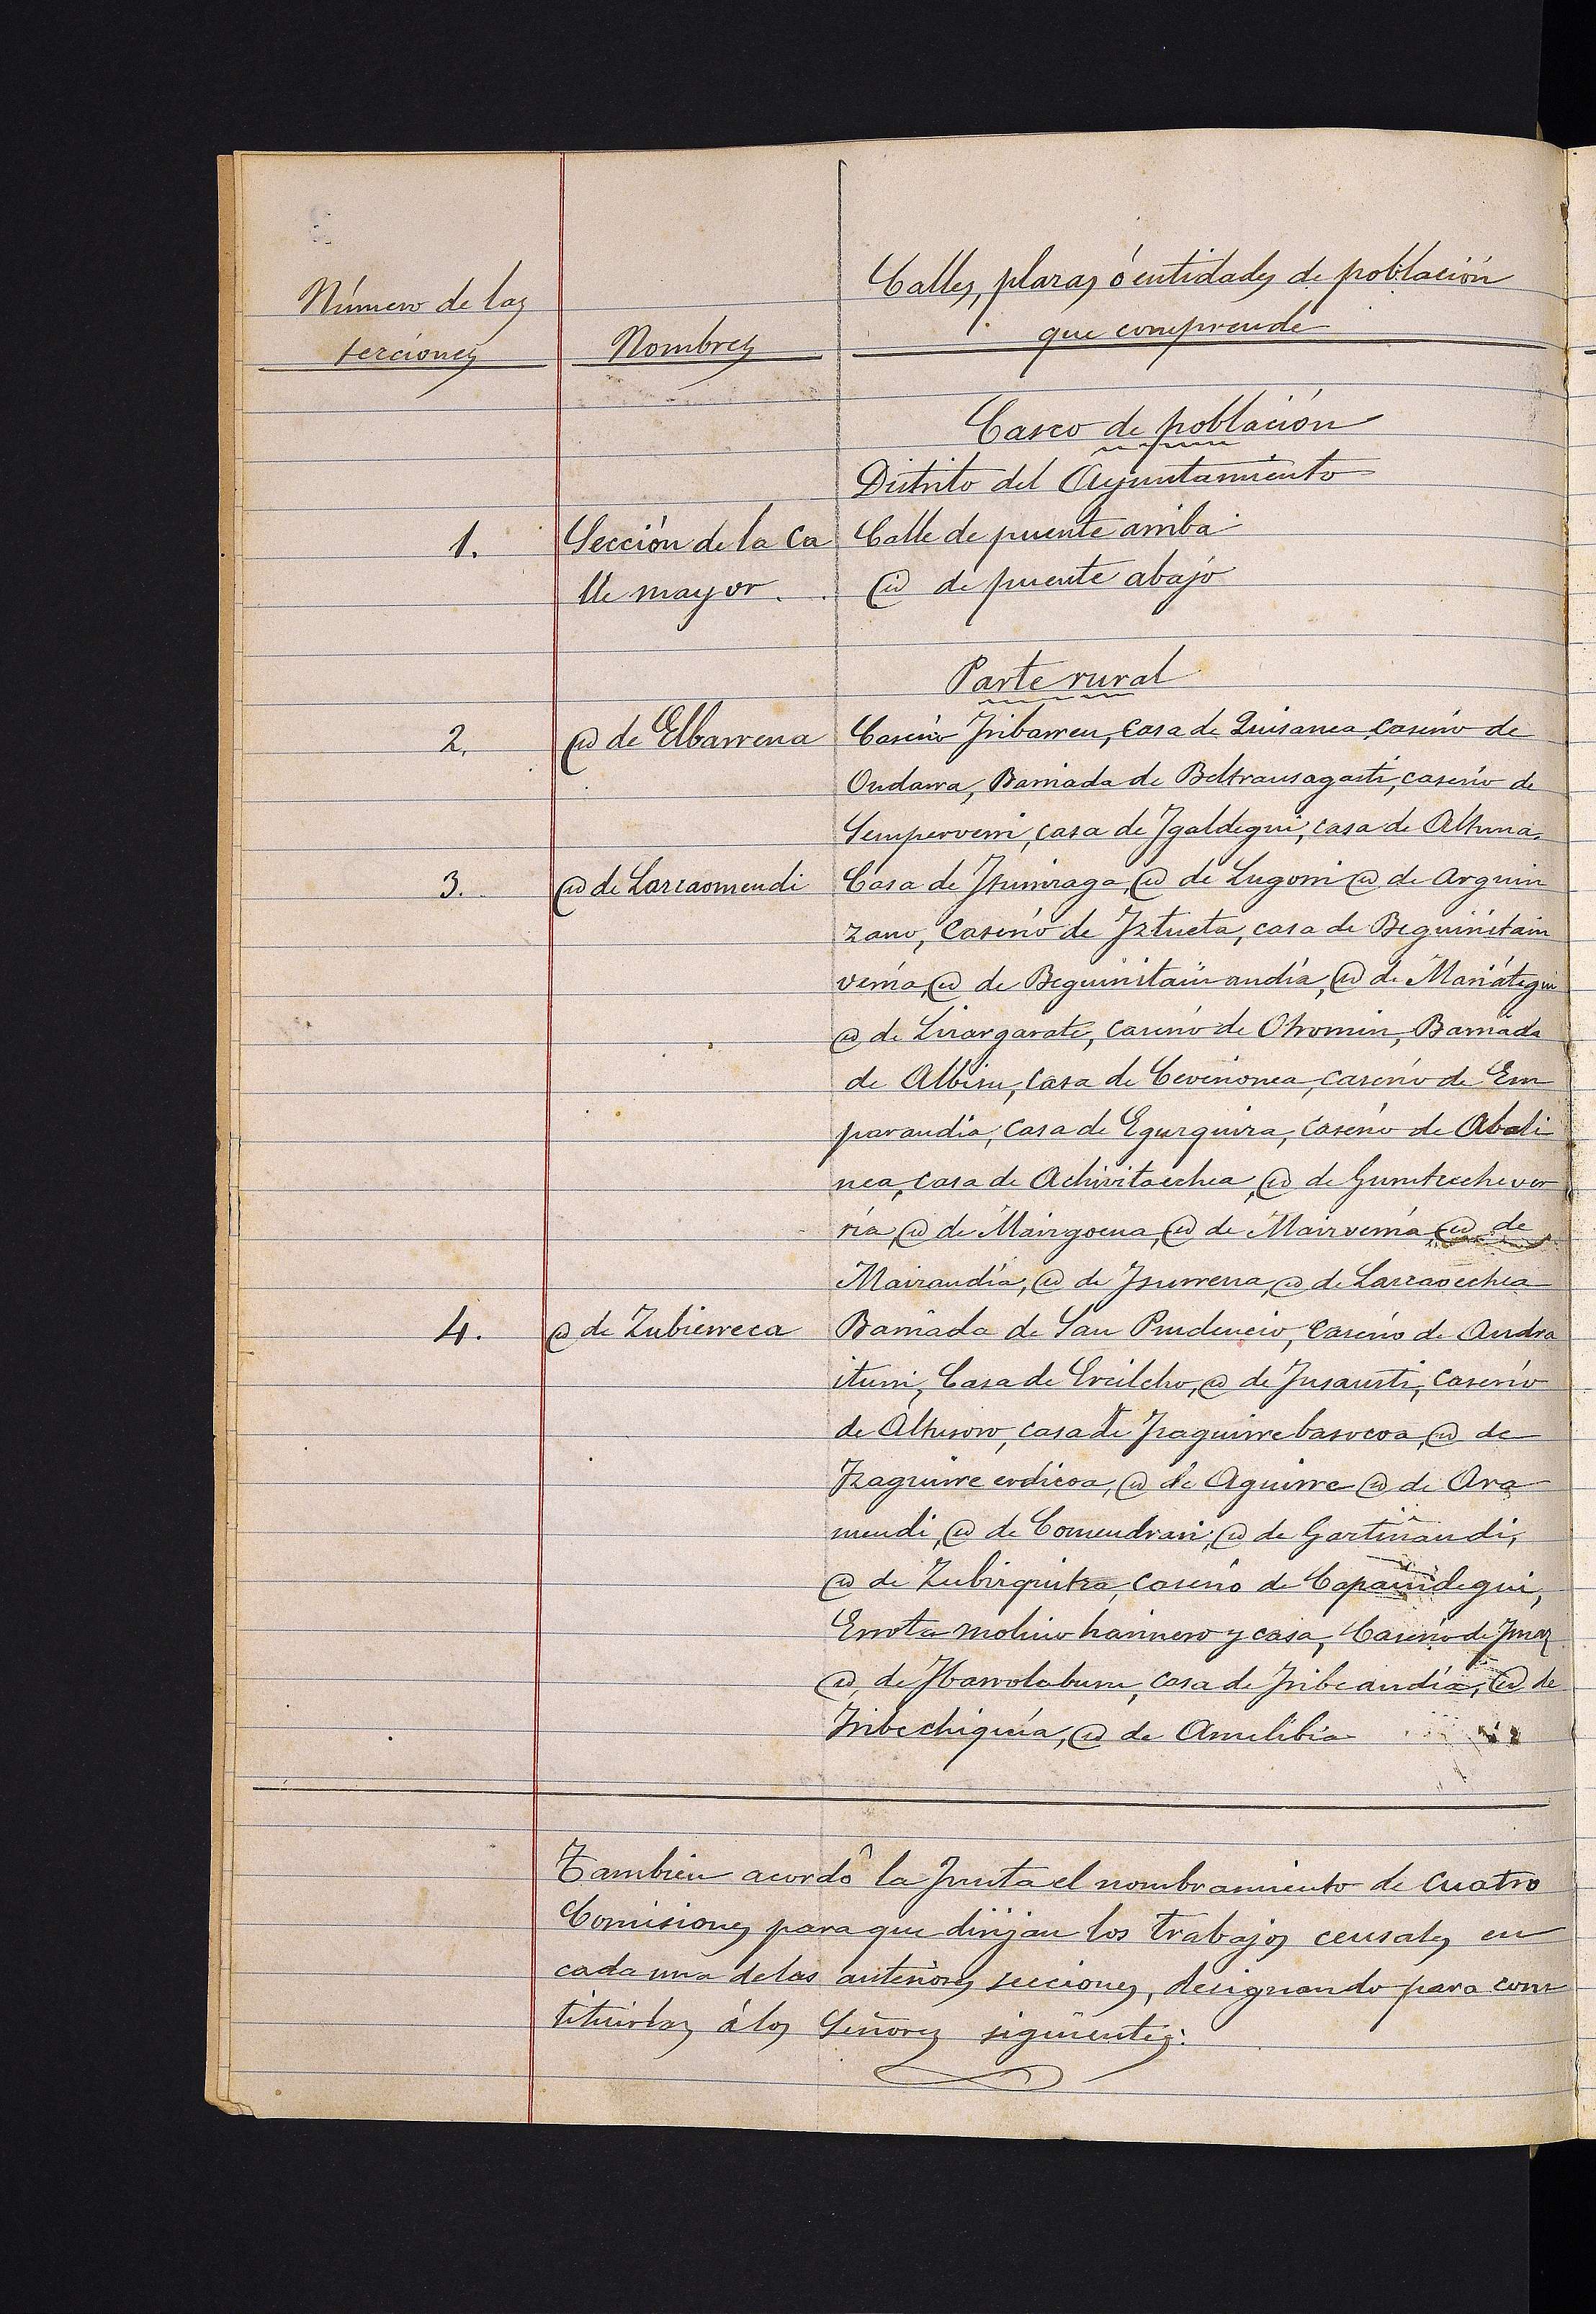 Número de las
secciones
Nombres
Calles, plazas ó entidades de población
que comprende
Casco de población
Distrito del Ayuntamiento
1.
Sección de la Ca
lle mayor.
Calle de puente arriba
id de puente abajo
Parte rural
2.
id de Elbarrena
Caserío Iribarren, casa de Quisanea, caserío de
Ondarra, Barriada de Beltransagasti, caserío de
Semperverri, casa de Igaldegui, casa de Altuna.
3.
id de Larraomendi
Casa de Iturriraga, id de Lugorri id de Arguin
zano, Caserío de Iztueta, casa de Beguiristain
verría, id de Beguiristain andía, id de Mariátegui
id de Lizargarate, caserío de Otromin, Barriada
de Albisu, casa de Ceverionea, caserío de Em
parandia, casa de Egurquiza, caserío de Abali
nea, casa de Achivitaechea, id de Gurutzechever
ría, id de Mairgoena, id de Mairverría, id de
Mairandía, id de Isurrena, id de Larraoechea
4.
id de Zubierreca
Barriada de San Prudencio, Caserío de Andra
iturri, Casa de Ercilcho, id de Insausti, Caserío
de Altusoro, casa de Izaguirre basocoa, id de
Izaguirre erdicoa, id de Aguirre id de Ara
mendi, id de Comendrari, id de Gartinandi,
id de Zubirguitza, caserío de Capaindegui,
Errota molino harinero y casa, Caserío de Imaz
id, de Ibarrolaburu, casa de Iribeandía, id de
Iribechiquia, id de Amilibia
También acordó la Junta el nombramiento de cuatro
Comisiones para que dirijan los trabajos censales en
cada una de las anteriores secciones, designando para cons
tituirlas á los Señores siguientes: